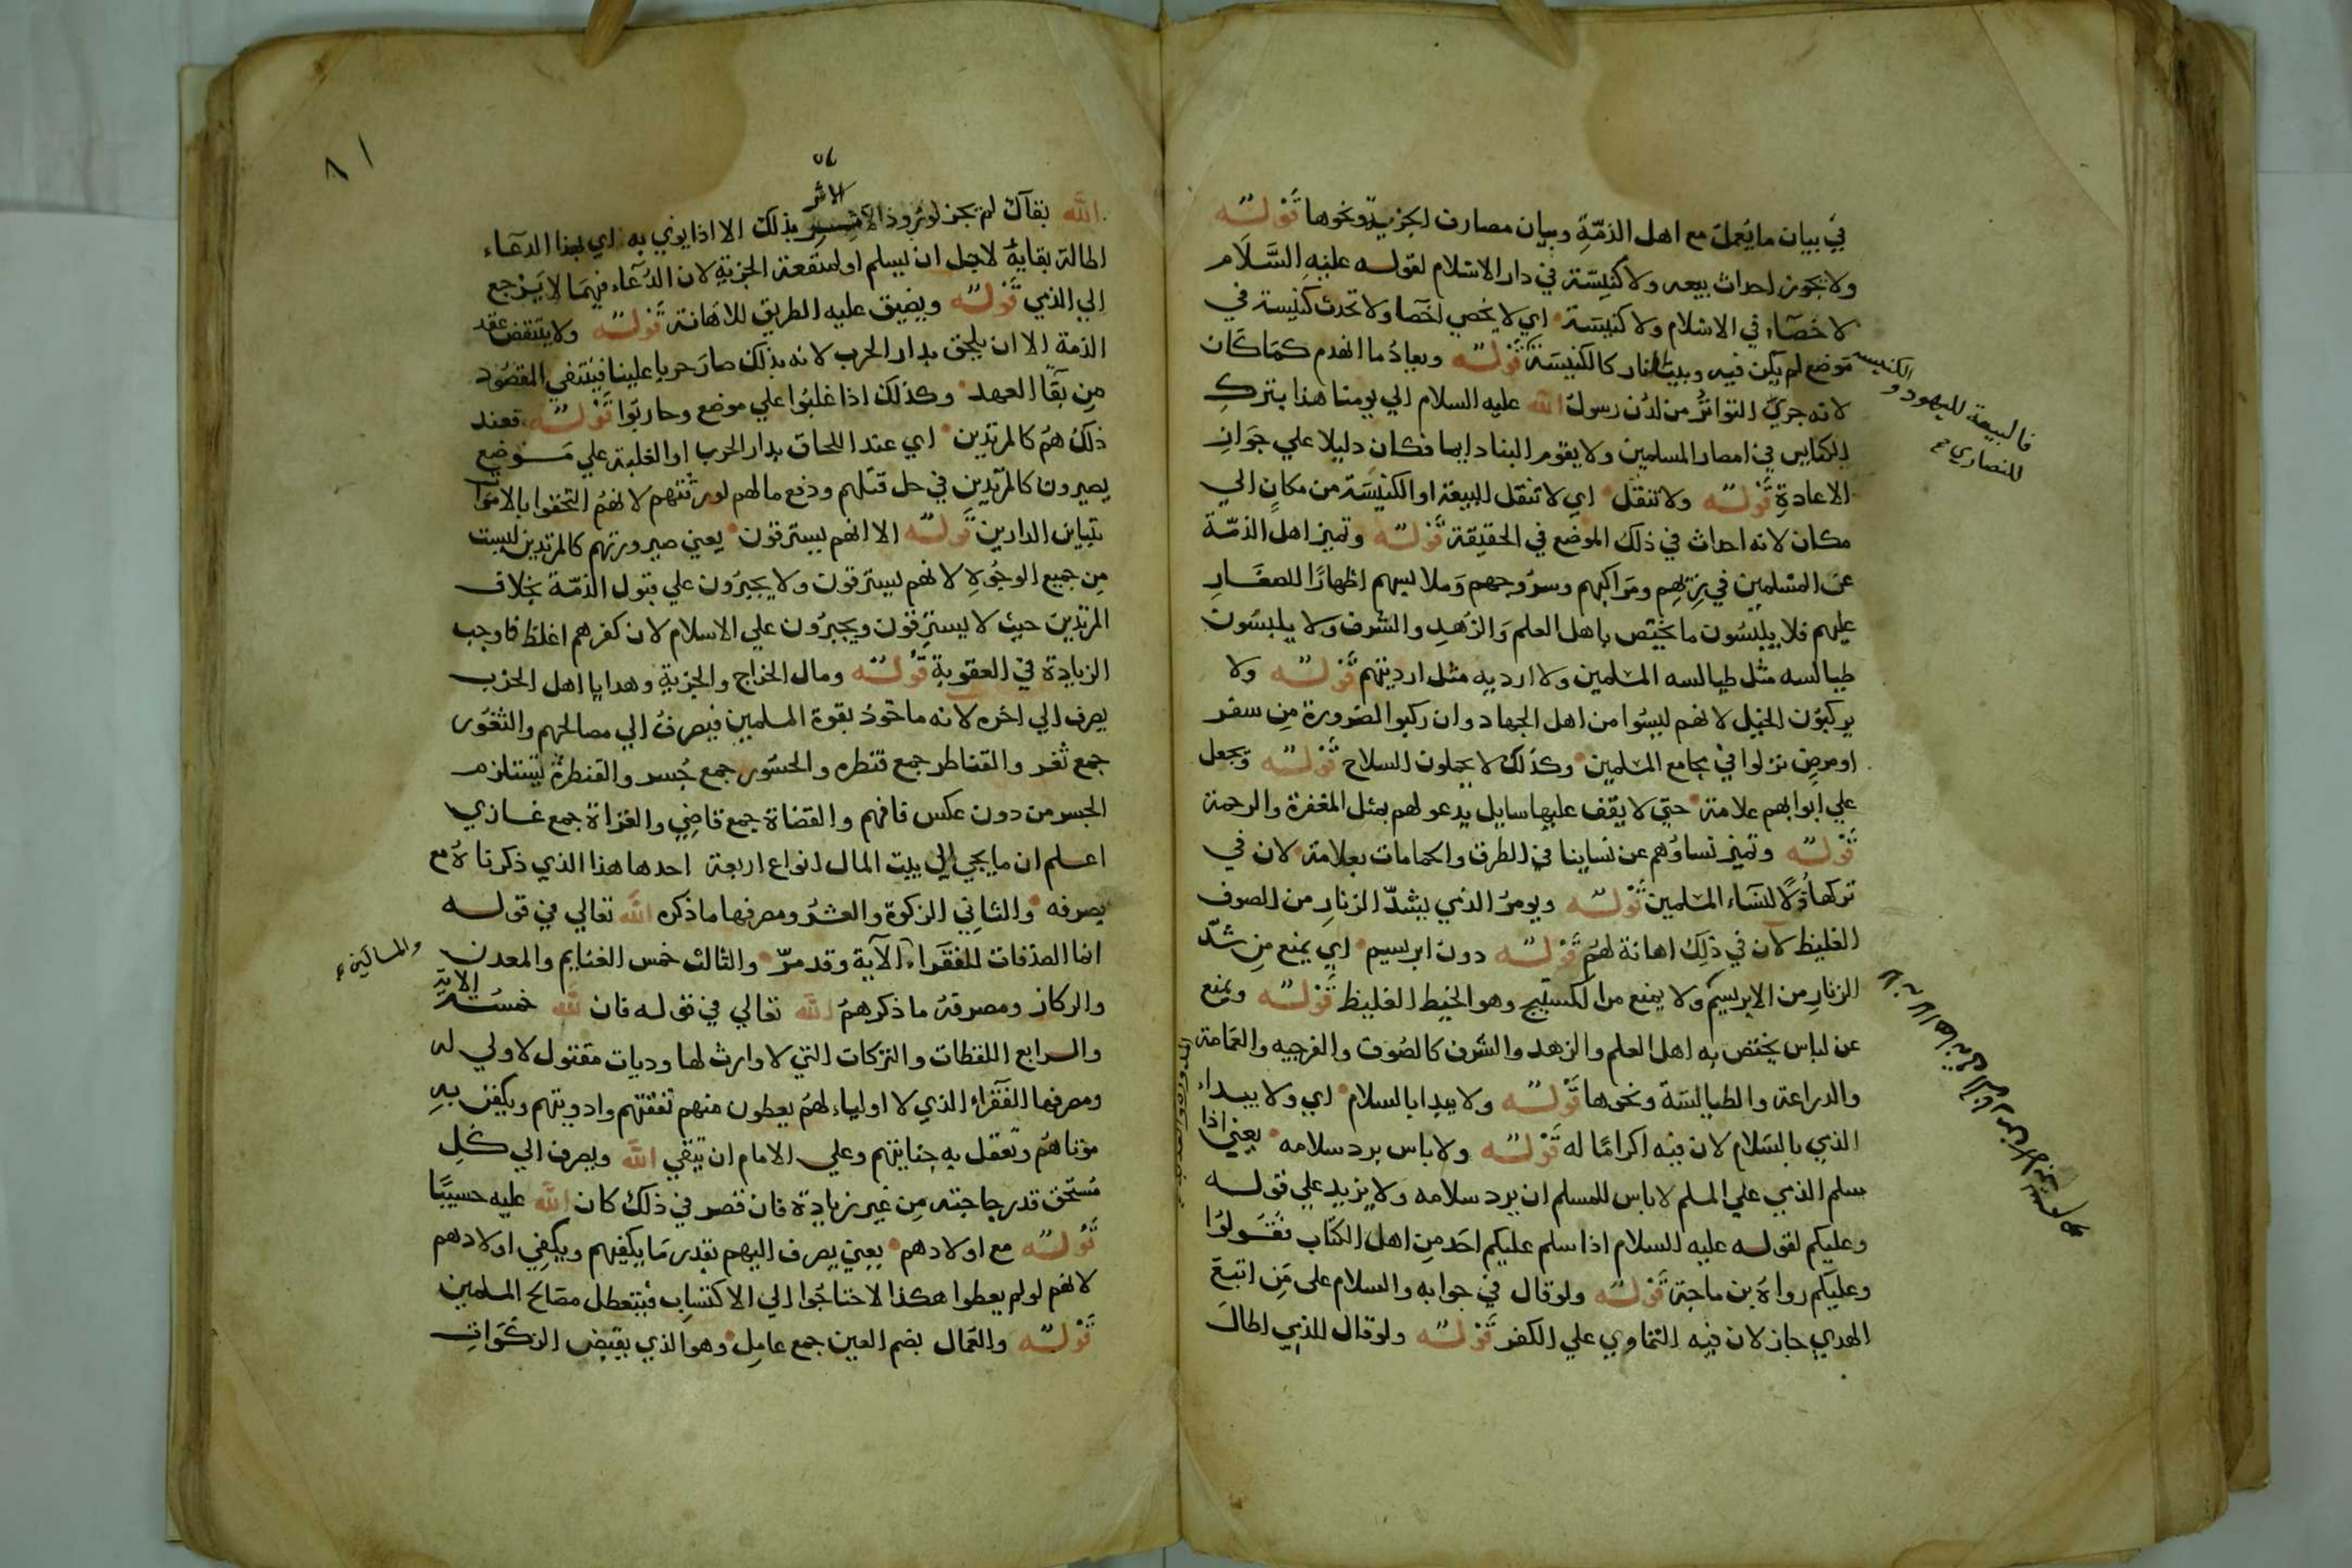 في بيان ما يعمل مع اهل الذمّة وبيان مصارف الجزية ونحوها قوله
ولا يجوز احداث بيعه ولا كنيسة في دار الاسلام لقوله عليه السَّلَام
لا خصآء في الاسلام ولا كنيسة اي لا يخصي اخصا ولا تحدث كنيسة في
موضع لم يكن فيه وبيت النار كالكنيسة قوله ويعادُ ما انهدم كمَا كَان
لانه جري التوارُث من لدُن رسول الله عليه السلام الي يومنا هذا بترك
الكنايس في امصار المسلمين ولا يقوم البنا دايما فكان دليلا علي جَوَاز
الاعادةِ قوله ولا تنقل اي لا تنقل البيعة او الكنيسَة من مكانٍ الي
مكان لانه احداث في ذلك الموضع في الحقيقة قوله وتميز اهل الذمّة
عن المسلمين في زيّهم ومَراكبهم وسرُوجهم وَملابسهم اظهارًا للصغَارِ
عليهم فلا يلبسُون ما يختص باهل العلم وَالزهدِ والشرف ولا يلبسُون
طيالسه مثل طيالسه المسلمين ولا ارديه مثل ارديتهم قوله ولا
يركبوُن الخيل لانهم ليسُوا من اهل الجهاد وان ركبوا لضرورة مِن سفر
او مرض نزلوا في مجامع المسلمين وكذلك لا يحملون السلاح قوله وتجعل
علي ابوابهم علامة حتي لا يقف عليها سايل يدعو لهم بمثل المغفرة والرحمة
قوله وتميز نساؤهم عن نساينا في الطرق والحمامات بعلامة لان في
تركها ذلا لنسَاء المسلمين قوله ويومرُ الذمي بشدّ الزنارِ من الصوف
الغليظ لان في ذلِكَ اهانة لهُم قوله دون ابريسيم اي يمنع مِن شدّ
الزنارِ من الابريسيم ولا يمنع من الكستيج وهو الخيط الغليظ قوله ويمنع
عن لباس يختص به اهل العلم والزهد والشرف كالصُوف والفرجيه والعمَامة
والدراعة والطيالسَة ونحوها قوله ولا يبدا بالسلام اي ولا يبداء
الذمي بالسَلام لان فيه اكرامًا له قوله ولا باس برد سلامه يعني اذا
سلم الذمي علي المسلم لا باس للمسلم ان يرد سلامه ولا يزيد علي قوله
وعليكم لقوله عليه السلام اذا سلم عليكم احَد مِن اهل الكتاب فقُولوُا
وعليكم رواهُ بن ماجة قوله ولو قال في جوابه والسلام على مَن اتبعَ
الهدي جاز لان فيه التماوي علي الكفر قوله ولو قال للذمي اطالَ
الكنيسه
فالبيعة لليهود و
للنصاري
٨١
الاشر
الله بقآك لم يجز لو بذلك الا اذا ينوي به اي بهذا الدعآء
اطالة بقايهُ لاجل ان يسلم او لمنفعة الجزيةِ لان الدُعآء فيهمَا لا يَرجع
الي الذمي قوله ويضيق عليه الطريق للاهَانة قوله ولا ينتقض عقد
الذمة الا ان يلحق بدار الحرب لانه بذلك صارَ حربا علينا فينتفي المقصُود
مِن بقآ العهد وكذلك اذا غلبُوا علي موضع وحاربوا قوله فعند
ذلكَ هُم كالمرتدين اي عند اللحاق بدار الحرب او الغلبة علي مَوضع
يصيرون كالمرتدين في حل قتلهم ودفع مالهم لورثتهم لانهُم التحقوا بالاموَات
بتباين الدارين قوله الا انهم يسترقون يعني صيرورتهم كالمرتدين ليست
مِن جميع الوجُوهِ لانهم يسترقون ولا يجبرُون علي قبول الذمّة بخلاف
المرتدينَ حيث لا يسترقون ويجبرُون علي الاسلام لان كفرهم اغلظ فاوجب
الزيادة في العقوبة قوله ومال الخراج والجزية وهدايا اهل الحرب
يصرف الي اخره لانه ماخوذ بقوة المسلمين فيصرفُ الي مصالحهم والثغوُر
جمع ثغر والقناطر جمع قنطره والجسُور جمع جُسر والقنطرةُ يستلزم
الجسر من دون عكس فافهم والقضاة جمع قاضِي والغزاة جمع غازي
اعلم ان ما يجي الي بيت المال انواع اربعة احدها هذا الذي ذكرناهُ مع
مصرفه والثاني الزكوة والعشرُ ومصرفها ما ذكره الله تعالي في قوله
انما الصدَقات للفقَراء الآية وقد مرّ والثالث خمس الغنايم والمعدن
والمساكين
والركاز ومصرفهُ ما ذكرهُم الله تعالي في قوله فان لله خمسُه الاية
والرابع اللقطات والتركات التي لا وارث لها وديات مقتول لا ولي له
ومصرفها الفقَراء الذي لا اولياء لهُم يعطون منهم نفقتهم وادويتهم ويكفن بهِ
موتاهُم وتعقل به جنايتهم وعلي الامام ان يتقي الله ويصرف الي كل
مُستحق قدر حاجته مِن غير زيادة فان قصر في ذلك كان الله عليه حسيبًا
قوله مع اولادهم يعني يصرف اليهم بقدر مَا يكفيهم ويكفِي اولادهم
لانهم لو لم يعطوا هكذا لاحتاجُوا الي الاكتسَابِ فيتعطل مصَالح المسلمين
قوله والعمال بضم العين جمع عامل وهو الذي يقبض الزكوَاتِ